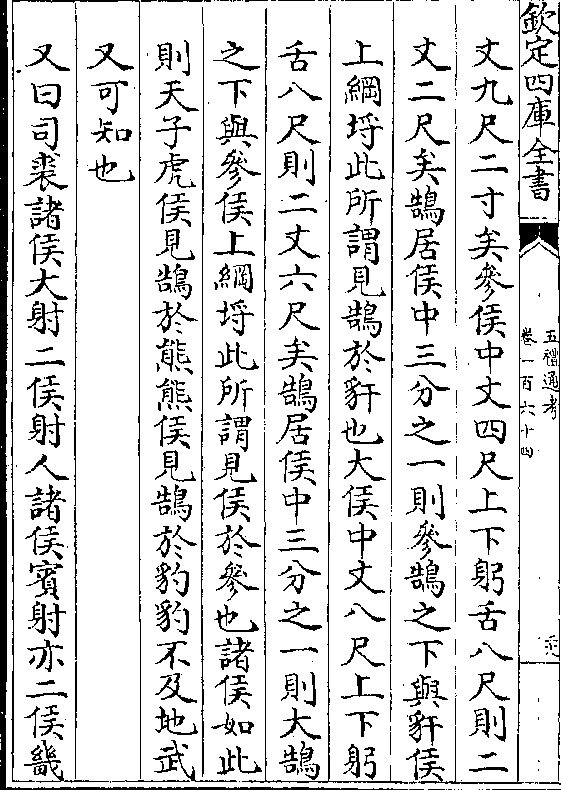 欽定四庫全書
五禮通考
卷一百六十四
丈九尺二寸矣參侯中丈四尺上下躬舌八尺則二
丈二尺矣鵠居侯中三分之一則參鵠之下與豻侯
上綱埒此所謂見鵠於豻也大侯中丈八尺上下躬
舌八尺則二丈六尺矣鵠居侯中三分之一則大鵠
之下與參侯上綱埒此所謂見侯於參也諸侯如此
則天子虎侯見鵠於熊熊侯見鵠於豹豹不及地武
又可知也
又曰司裘諸侯大射二侯射人諸侯賓射亦二侯畿